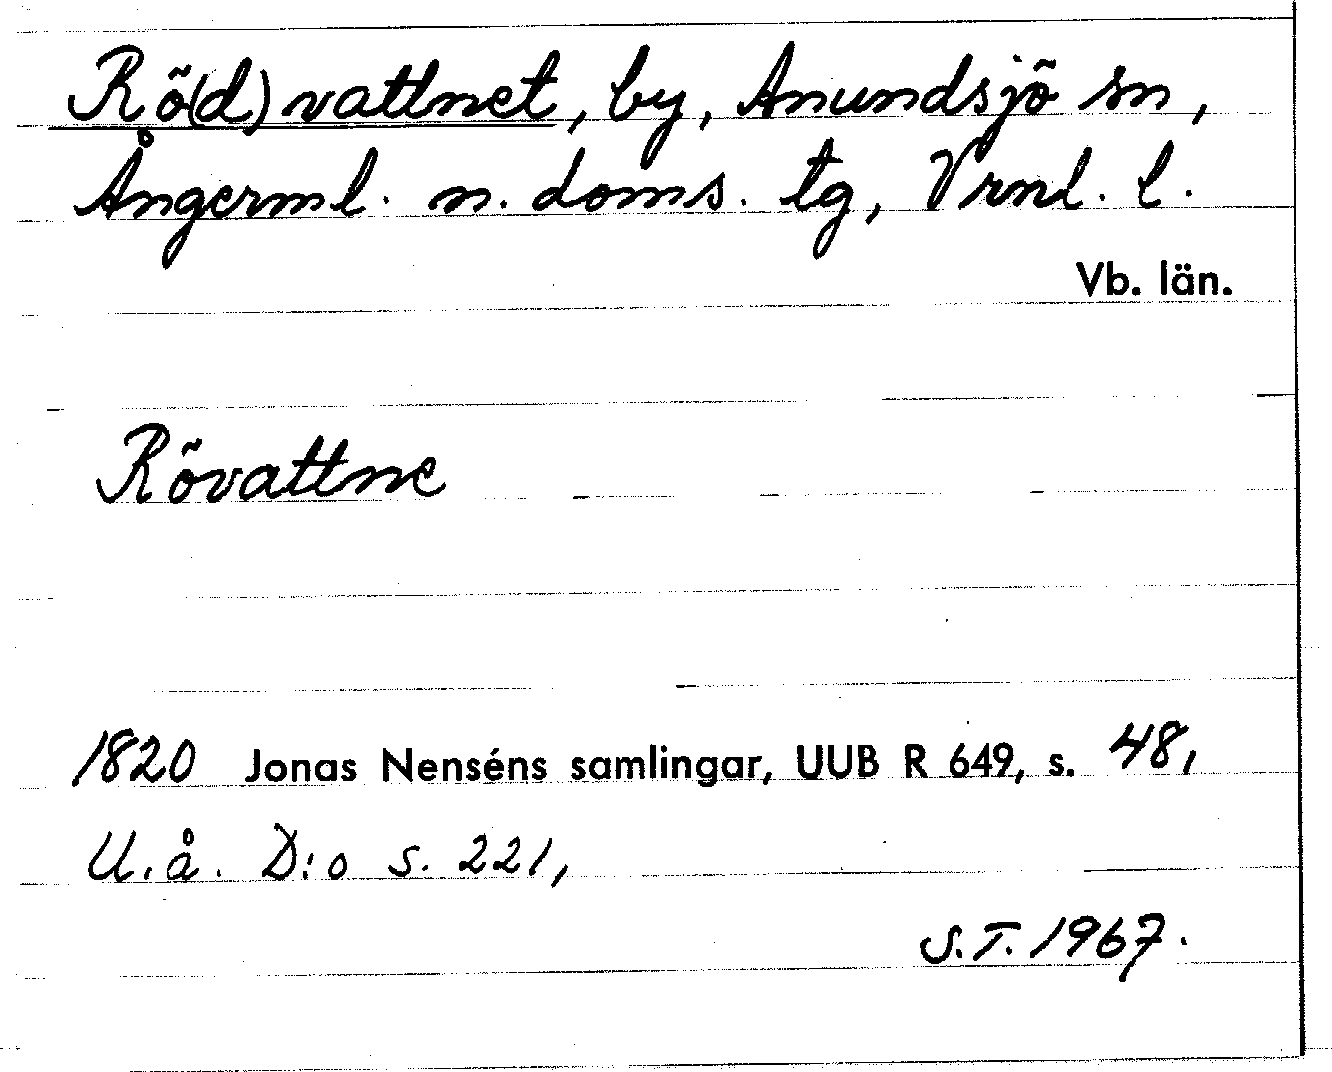 Rö(d)vattnet, by, Anundsjö sn,
Ångerml. n. doms. tg, Vrnl. l.
Vb. län.
Rövattne
1820 Jonas Nenséns samlingar, UUB R 649, s. 48,
U.å. D:o s. 221,
S.T. 1967.